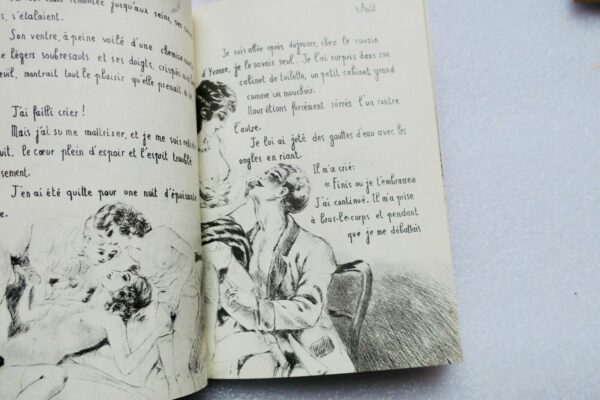 remontée jusqu'aux seins, ses
s, s'étalaient.
Son ventre, à peine voilé d'une chemise
légers soubresauts et ses doigts, crispés
euil, montrait tout le plaisir qu'elle prenait à
J'ai failli crier !
Mais j'ai su me maitriser, et je me suis
uit, le cœur plein d'espoir et l'esprit troublé
sement.
J'en ai été quitte pour une nuit d'épuisante
e.
3 Août
Je suis allée après déjeuner, chez le cousin
d'Yvonne, je le savais seul. Je l'ai surpris dans son
cabinet de toilette, un petit cabinet grand
comme un mouchoir.
Nous étions forcément serrés l'un contre
l'autre.
Je lui ai jeté des gouttes d'eau avec les
ongles en riant.
Il m'a crié:
« Finis ou je t'embrasse »
J'ai continué. Il m'a prise
à bras-le-corps et pendant
que je me débattais